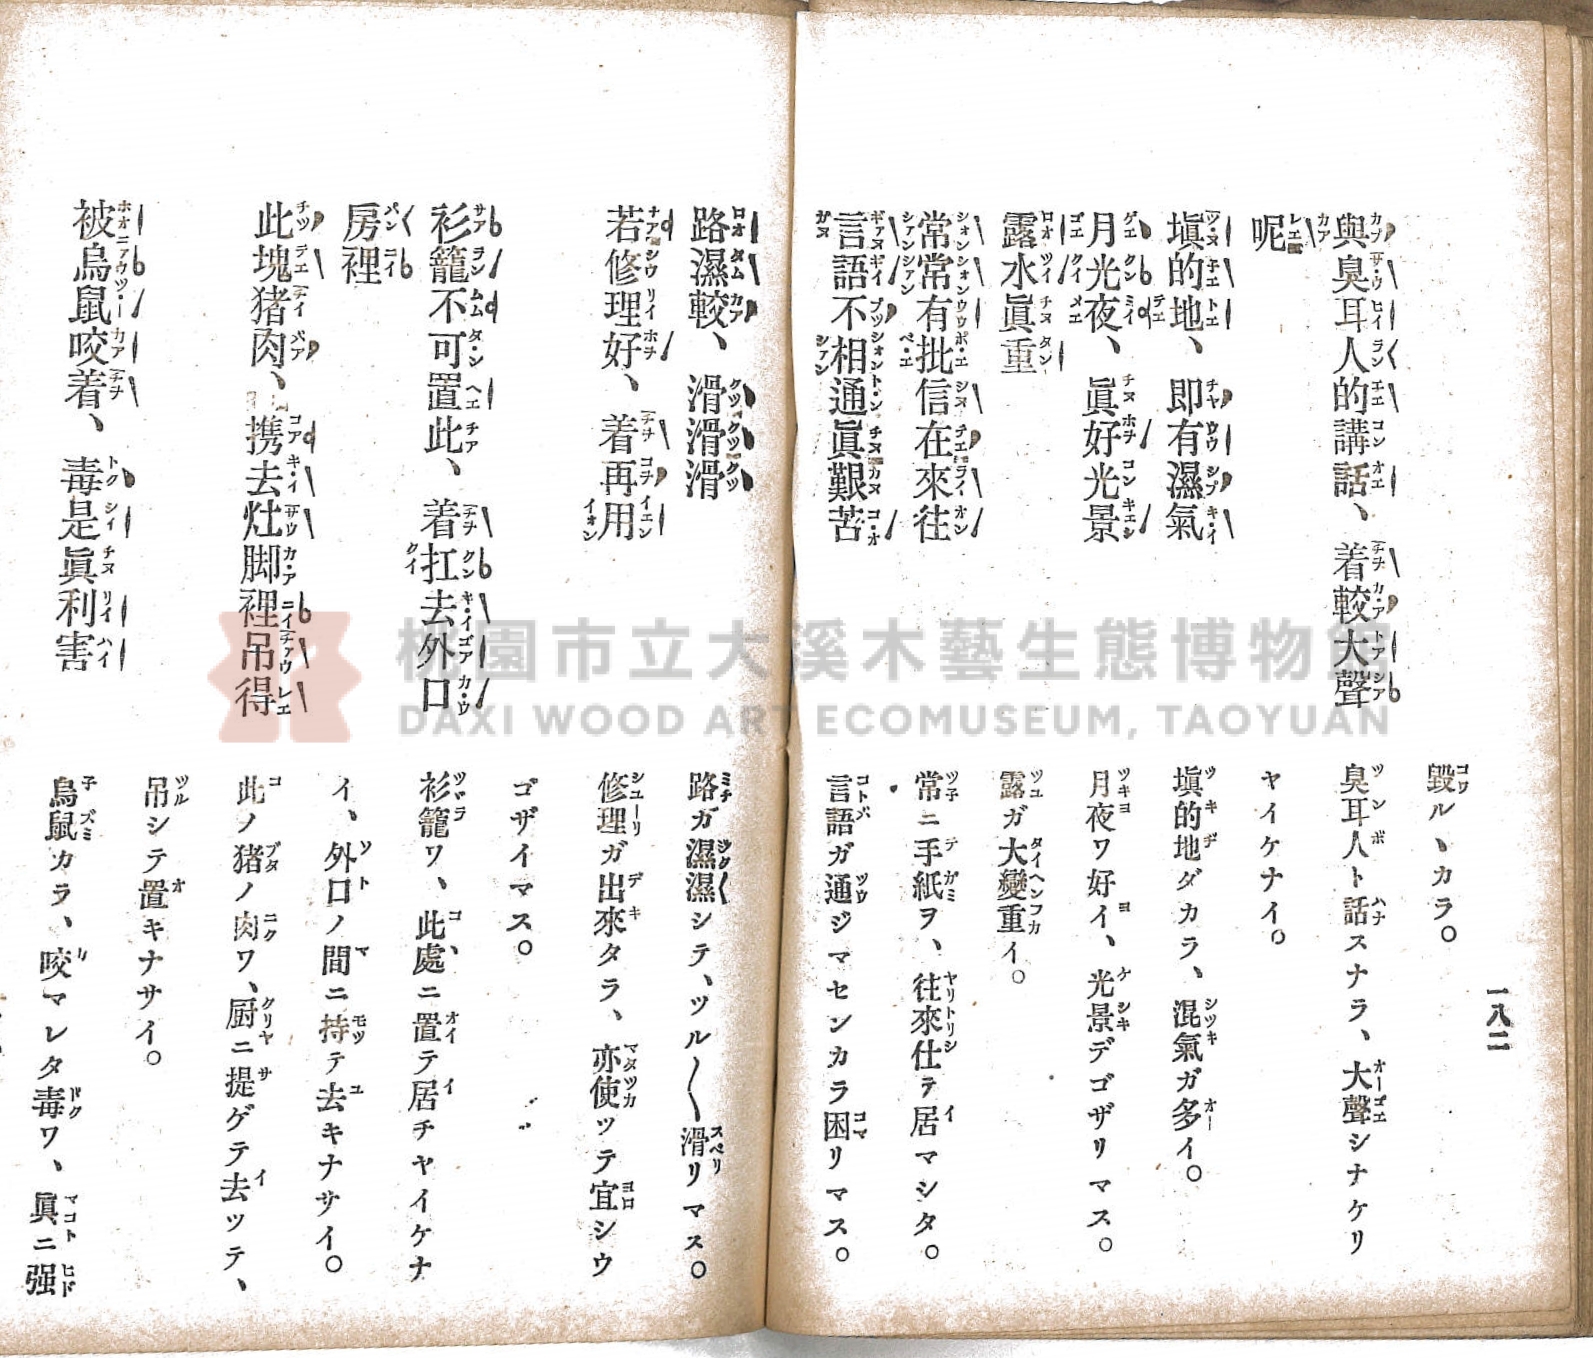 一八二
毀ル丶カラ。
與臭耳人的講話、着較大聲
臭耳人ト話スナラ、大聲シナケリ
呢
ヤイケナイ。
塡的地、即有濕氣
塡的地ダカラ、混氣ガ多イ。
月光夜、眞好光景
月夜ワ好イ、光景デゴザリマス。
露水眞重
露ガ大變重イ。
常常有批信在來往
常ニ手紙ヲ、往來仕テ居マシタ。
言語不相通眞艱苦
言語ガ通ジマセンカラ困リマス。
路濕較、滑滑滑
路ガ濕濕シテ、ツル〱滑リマス。
若修理好、着再用
修理ガ出來タラ、亦使ツテ宜シウ
ゴザイマス。
衫籠不可置此、着扛去外口
衫籠ワ、此處ニ置テ居チヤイケナ
房裡
イ、外口ノ間ニ持テ去キナサイ。
此塊猪肉、携去灶脚裡吊得
此ノ猪ノ肉ワ、厨ニ提ゲテ去ツテ、
吊シテ置キナサイ。
被鳥鼠咬着、毒是眞利害
鳥鼠カラ、咬マレタ毒ワ、眞ニ强
桃園市立大溪木藝生態博物館
DAXI WOOD ART ECOMUSEUM, TAOYUAN